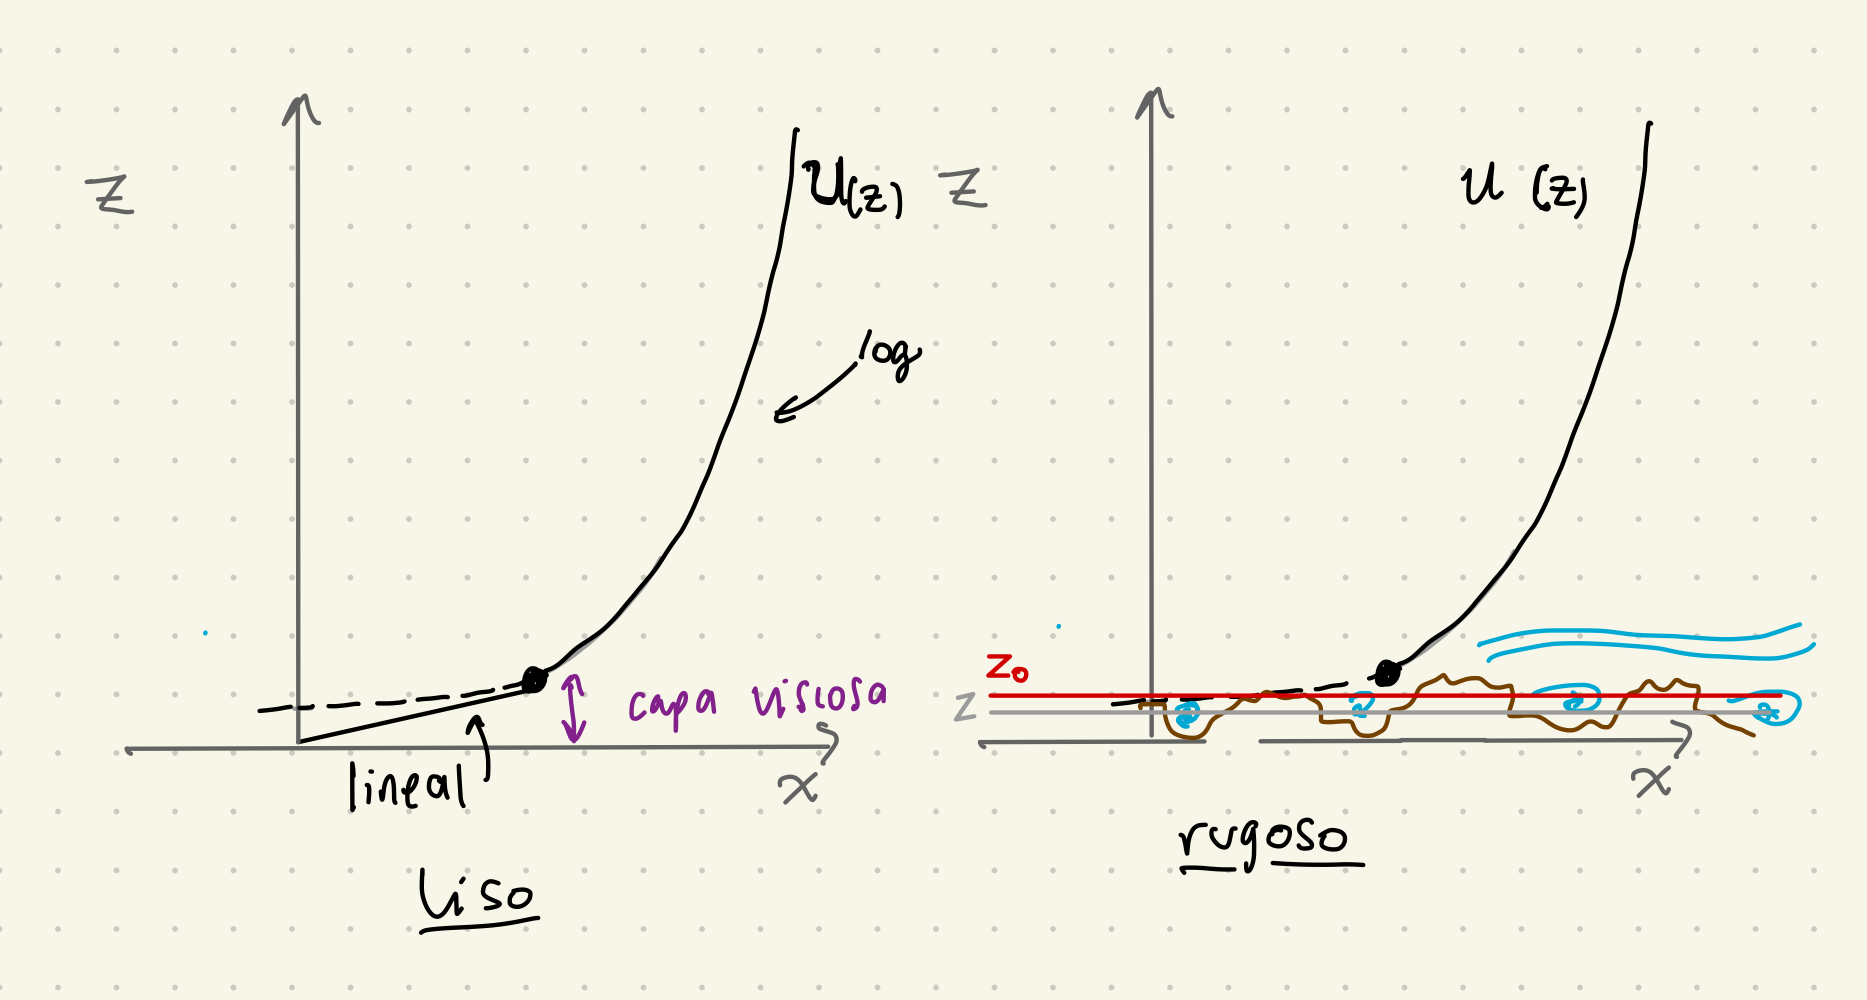 z
U(z)
log
capa viscosa
lineal
x
Liso
z
u (z)
z₀
z
x
rugoso